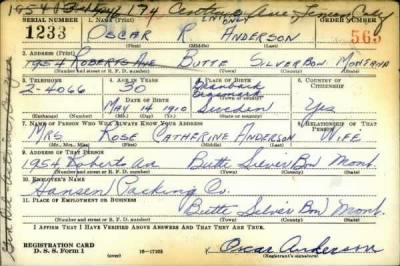 174 Ave. Jersey City
SERIAL NUMBER 1. NAME (Print) INT ONLY ORDER NUMBER
1233 OSCAR R ANDERSON 565
(First) (Middle) (Last)
2. ADDRESS (Print)
1954 ROBERTS AVE BUTTE SILVER BOW MONTANA
(Number and street or R. F. D. number) (Town) (County) (State)
3. TELEPHONE 4. AGE IN YEARS 5. PLACE OF BIRTH 6. COUNTRY OF CITIZENSHIP
2-4066 30
DATE OF BIRTH
MAY 14 1910 Sweden Yes
(Exchange) (Number) (Mo.) (Day) (Yr.) (State or country)
7. NAME OF PERSON WHO WILL ALWAYS KNOW YOUR ADDRESS 8. RELATIONSHIP OF THAT PERSON
MRS ROSE CATHERINE ANDERSON WIFE
(Mr., Mrs., Miss) (First) (Middle) (Last)
9. ADDRESS OF THAT PERSON
1954 Roberts Av Butte Silver Bow Mont.
(Number and street or R. F. D. number) (Town) (County) (State)
10. EMPLOYER'S NAME
Hansen Packing Co.
11. PLACE OF EMPLOYMENT OR BUSINESS
Butte Silver Bow Mont.
(Number and street or R. F. D. number) (Town) (County) (State)
I AFFIRM THAT I HAVE VERIFIED ABOVE ANSWERS AND THAT THEY ARE TRUE.
REGISTRATION CARD
D. S. S. Form 1 16-17105 Oscar Anderson
(Registrant's signature)